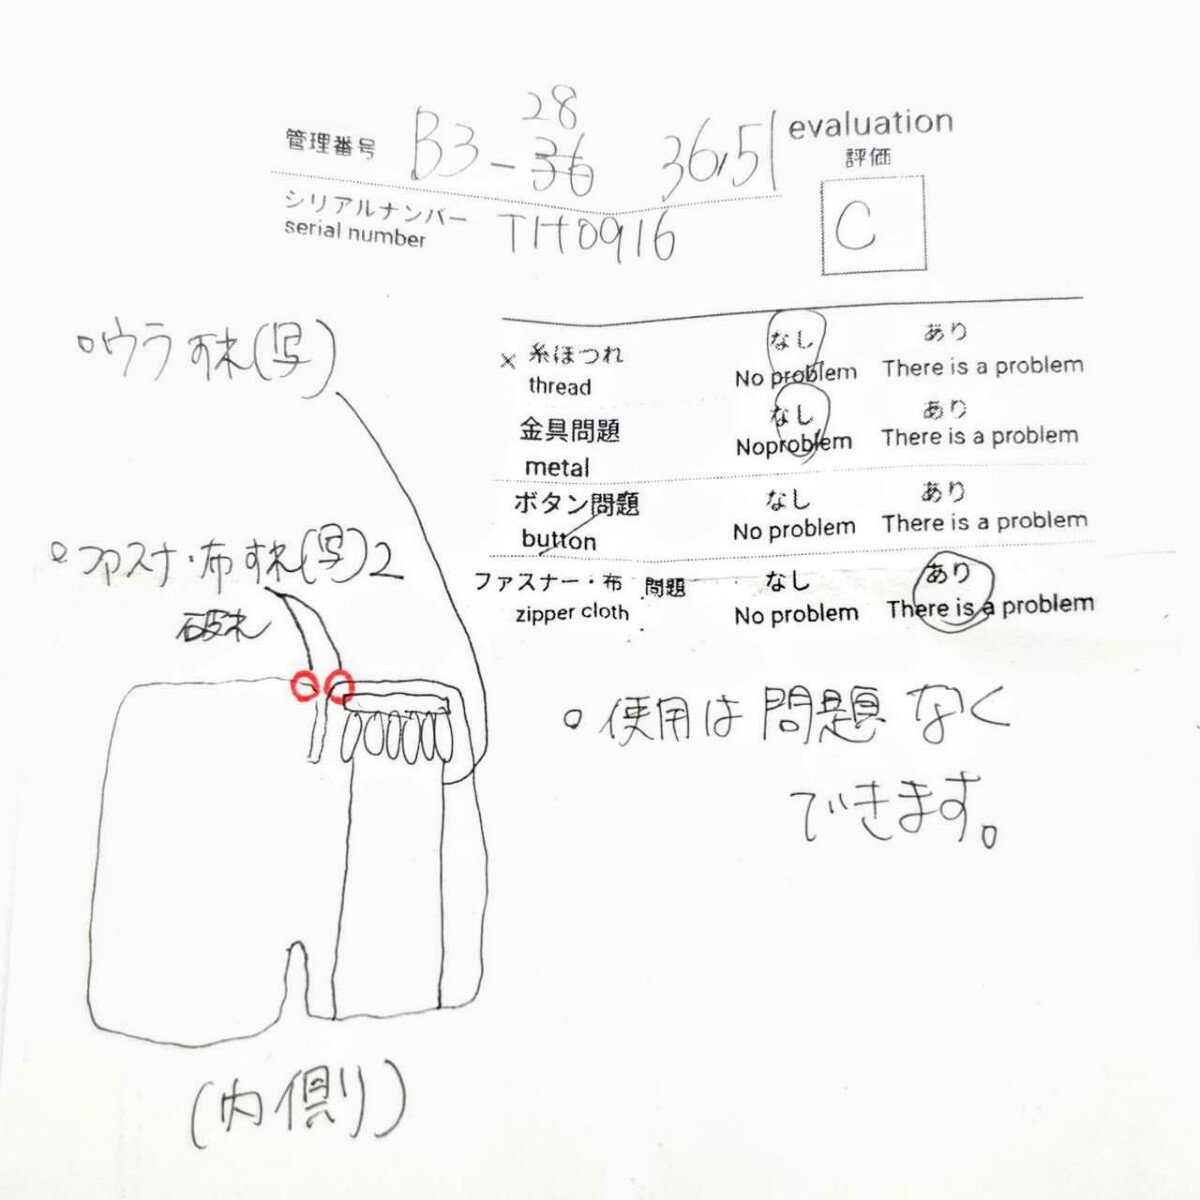 管理番号 B3-36 28 36,51
シリアルナンバー
serial number TH0916
evaluation
評価
C
×糸ほつれ なし あり
thread No problem There is a problem
金具問題 なし あり
metal Noproblem There is a problem
ボタン問題 なし あり
button No problem There is a problem
ファスナー・布 問題 なし あり
zipper cloth No problem There is a problem
○ウラすれ(写)
○ファスナ・布すれ(写)2
破れ
○使用は問題なく
できます。
(内側)